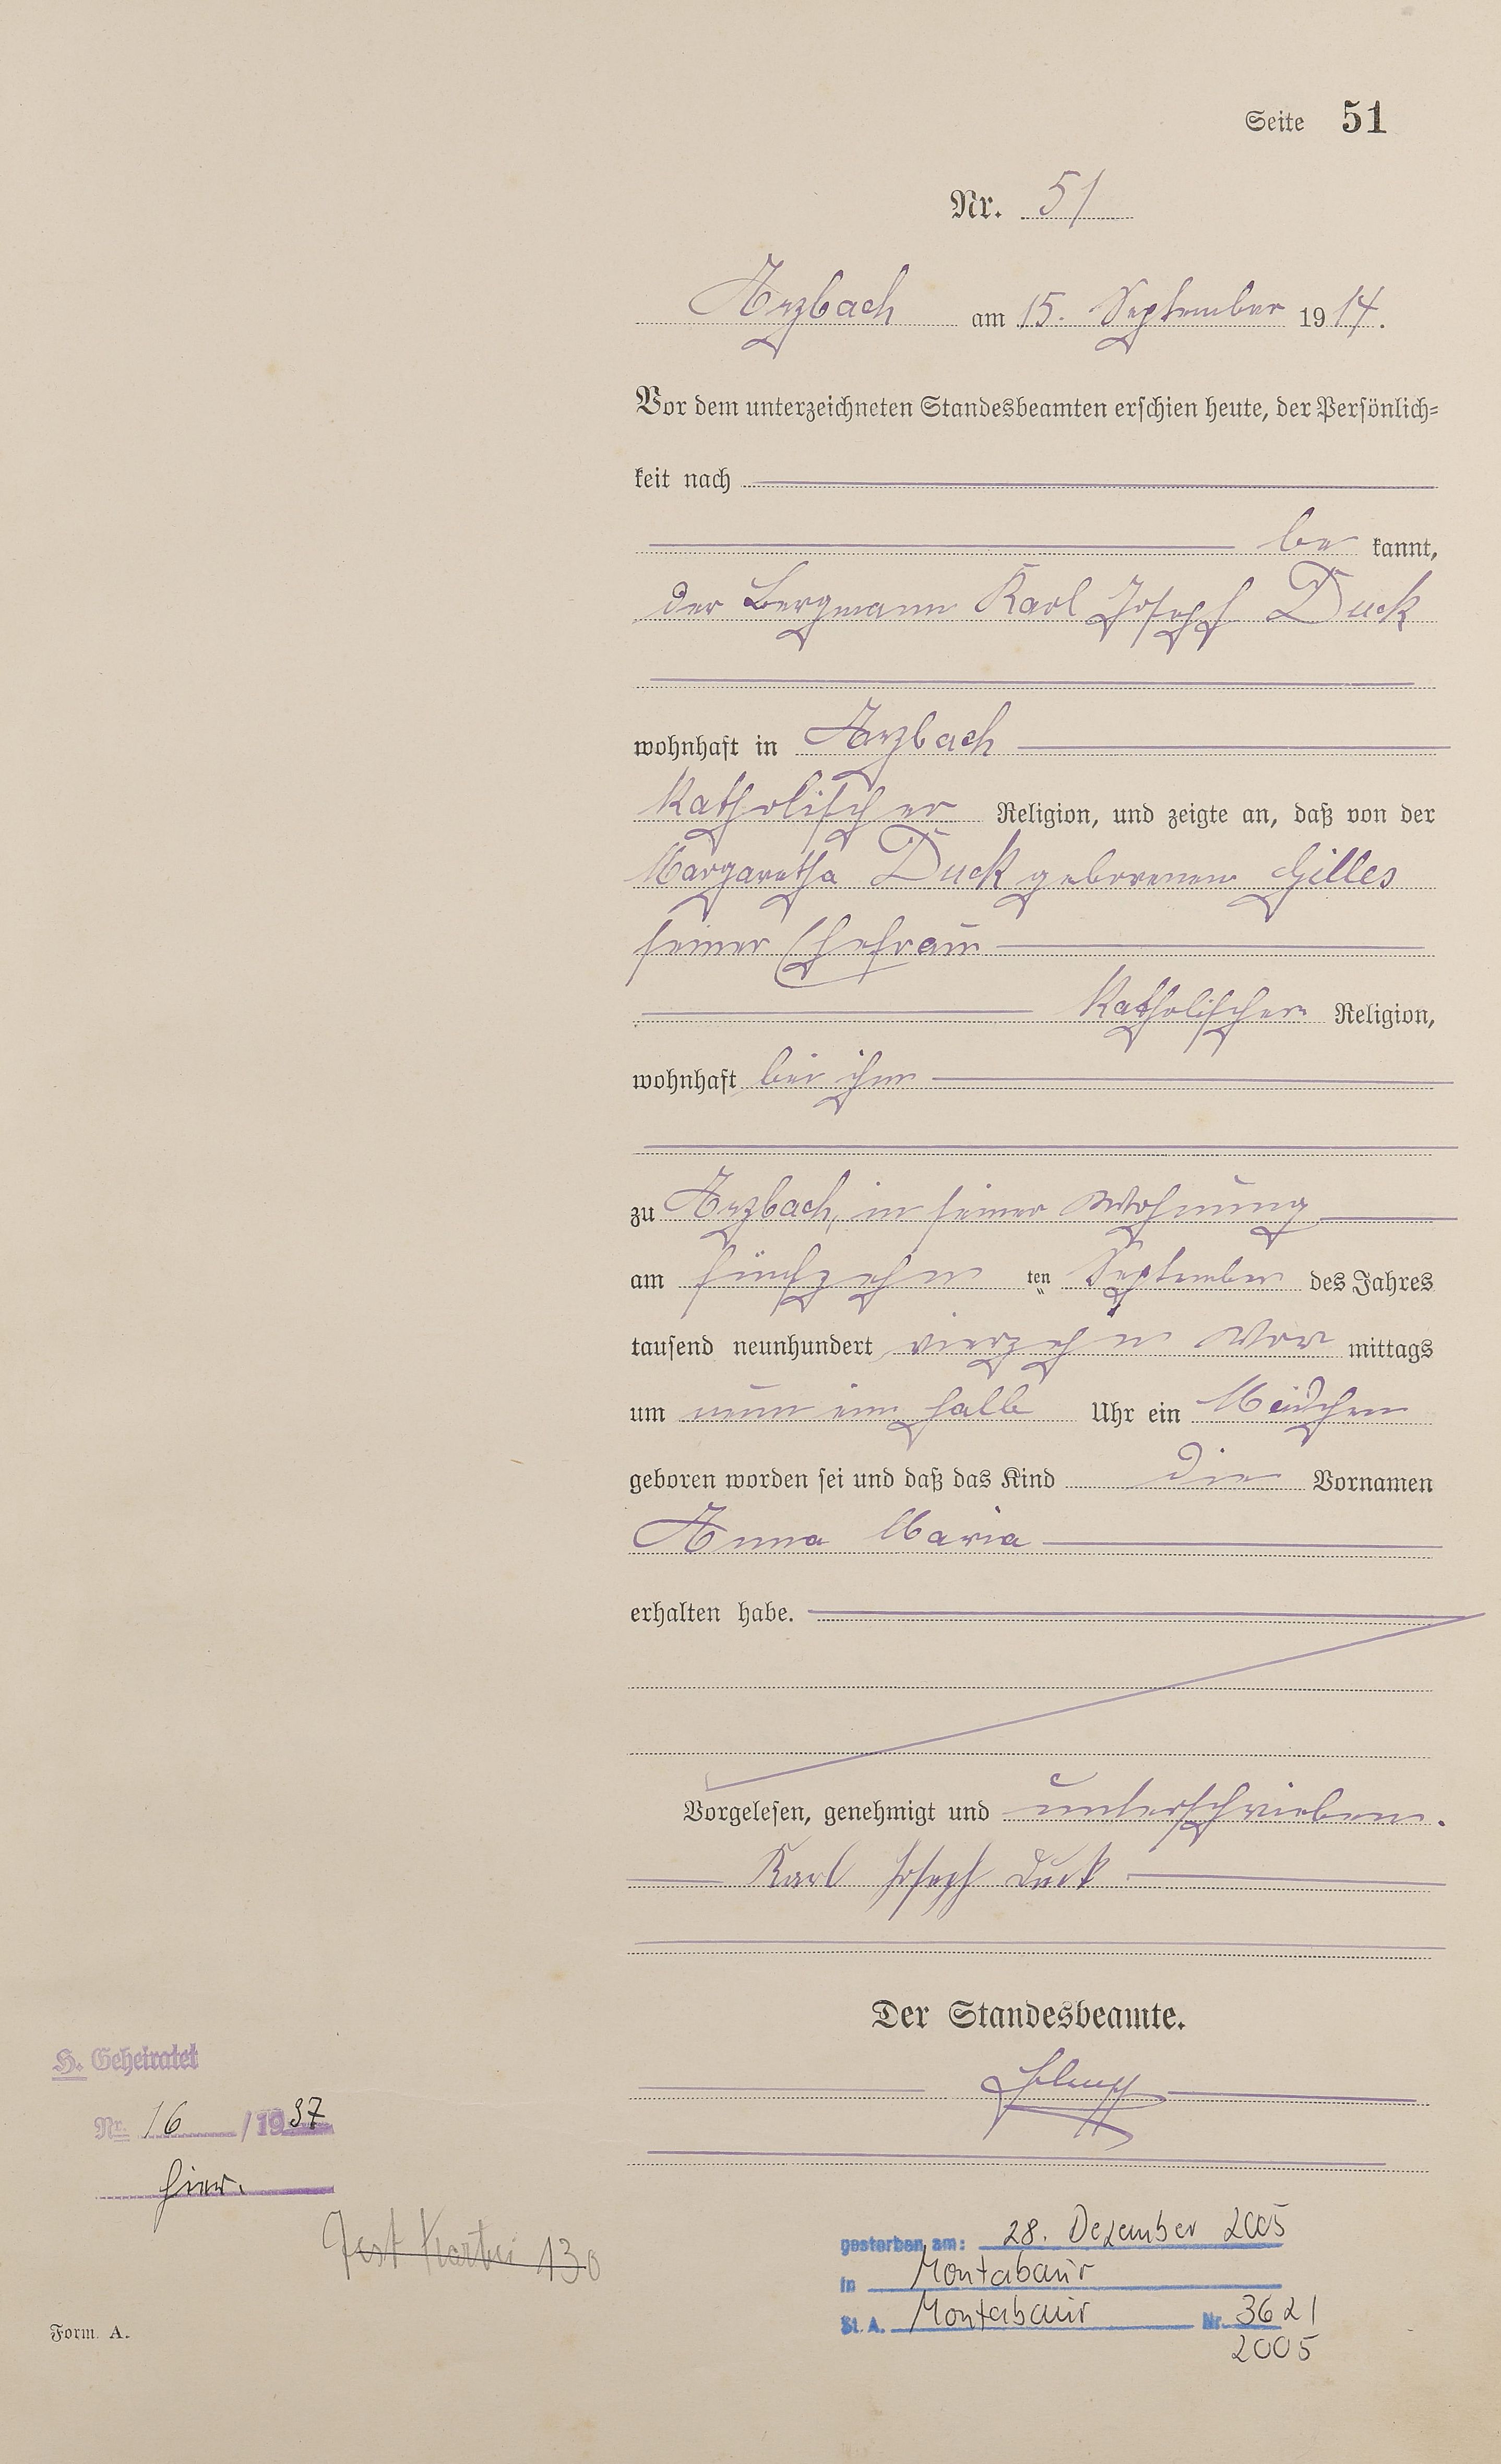 Seite 51
Nr. 51
Arzbach am 15. September 1914.
Vor dem unterzeichneten Standesbeamten erschien heute, der Persönlich=
keit nach
be kannt,
der Bergmann Karl Joseph Duck
wohnhaft in Arzbach
katholischer Religion, und zeigte an, daß von der
Margaretha Duck geborenen Gilles
seiner Ehefrau
katholischer Religion,
wohnhaft bei ihm
zu Arzbach, in seiner Wohnung
am fünfzehn ten September des Jahres
tausend neunhundert vierzehn Vor mittags
um neun ein halb Uhr ein Mädchen
geboren worden sei und daß das Kind die Vornamen
Anna Maria
erhalten habe.
Vorgelesen, genehmigt und unterschrieben.
Karl Joseph Duck
Der Standesbeamte.
H. Geheiratet
Nr. 16 / 1937
hier.
Kartei 130
gestorben am: 28. Dezember 2005
in Montabaur
St. A. Montabaur Nr. 3621
2005
Form. A.